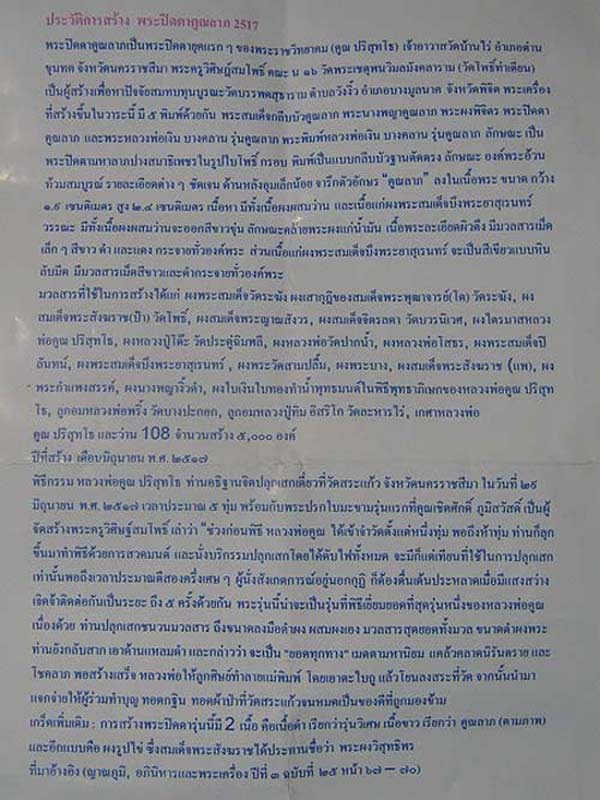 ประวัติการสร้าง พระปิดตาคูณลาภ 2517
พระปิดตาคูณลาภเป็นพระปิดตายุคแรก ๆ ของพระราชวิทยาคม (คูณ ปริสุทโธ) เจ้าอาวาสวัดบ้านไร่ อำเภอด่าน
ขุนทด จังหวัดนครราชสีมา พระครูวิศิษฎ์สมโพธิ์ คณะ น ๑๖ วัดพระเชตุพนวิมลมังคลาราม (วัดโพธิ์ท่าเตียน)
เป็นผู้สร้างเพื่อหาปัจจัยสมทบทุนบูรณะวัดบรรพตสุธาราม ตำบลวังงิ้ว อำเภอบางมูลนาค จังหวัดพิจิต พระเครื่อง
ที่สร้างขึ้นในวาระนี้ มี ๕ พิมพ์ด้วยกัน พระสมเด็จกลีบบัวคูณลาภ พระนางพญาคูณลาภ พระผงพิจิตร พระปิดตา
คูณลาภ และพระหลวงพ่อเงิน บางคลาน รุ่นคูณลาภ พระพิมพ์หลวงพ่อเงิน บางคลาน รุ่นคูณลาภ ลักษณะ เป็น
พระปิดตามหาลาภปางสมาธิเพชรในรูปใบโพธิ์ กรอบ พิมพ์เป็นแบบกลีบบัวฐานตัดตรง ลักษณะ องค์พระอ้วน
ท้วมสมบูรณ์ รายละเอียดต่าง ๆ ชัดเจน ด้านหลังอูมเล็กน้อย จารึกตัวอักษร "คูณลาภ" ลงในเนื้อพระ ขนาด กว้าง
๑.๙ เซนติเมตร สูง ๒.๔ เซนติเมตร เนื้อหา มีทั้งเนื้อผงผสมว่าน และเนื้อแก่ผงพระสมเด็จบึงพระยาสุเรนทร์
วรรณะ มีทั้งเนื้อผงผสมว่านจะออกสีขาวขุ่น ลักษณะคล้ายพระผงแก่น้ำมัน เนื้อพระละเอียดผิวตึง มีมวลสารเม็ด
เล็ก ๆ สีขาว ดำ และแดง กระจายทั่วองค์พระ ส่วนเนื้อแก่ผงพระสมเด็จบึงพระยาสุเรนทร์ จะเป็นสีเขียวแบบหิน
ลับมีด มีมวลสารเม็ดสีขาวและดำกระจายทั่วองค์พระ
มวลสารที่ใช้ในการสร้างได้แก่ ผงพระสมเด็จวัดระฆัง ผงเสากุฎิของสมเด็จพระพุฒาจารย์(โต) วัดระฆัง, ผง
สมเด็จพระสังฆราช(ป๋า) วัดโพธิ์, ผงสมเด็จพระญาณสังวร, ผงสมเด็จจิตรลดา วัดบวรนิเวศ, ผงไตรมาสหลวง
พ่อคูณ ปริสุทโธ, ผงหลวงปู่โต๊ะ วัดประดู่ฉิมพลี, ผงหลวงพ่อวัดปากน้ำ, ผงหลวงพ่อโสธร, ผงพระสมเด็จปิ
ลันทน์, ผงพระสมเด็จบึงพระยาสุเรนทร์ , ผงพระวัดสามปลื้ม, ผงพระบาง, ผงสมเด็จพระสังฆราช (แพ), ผง
พระกำแพงสรรค์, ผงนางพญาผิวดำ, ผงใบเงินใบทองทำน้ำพุทธมนต์ในพิธีพุทธาภิเษกของหลวงพ่อคูณ ปริสุท
โธ, ลูกอมหลวงพ่อพริ้ง วัดบางปะกอก, ลูกอมหลวงปู่ทิม อิสริโก วัดละหารไร่, เกศาหลวงพ่อ
คูณ ปริสุทโธ และว่าน 108 จำนวนสร้าง ๕,๐๐๐ องค์
ปีที่สร้าง เดือนมิถุนายน พ.ศ. ๒๕๑๗
พิธีกรรม หลวงพ่อคูณ ปริสุทโธ ท่านอธิฐานจิตปลุกเสกเดี่ยวที่วัดสระแก้ว จังหวัดนครราชสีมา ในวันที่ ๒๙
มิถุนายน พ.ศ. ๒๕๑๗ เวลาประมาณ ๕ ทุ่ม พร้อมกับพระปรกใบมะขามรุ่นแรกที่คุณเชิดศักดิ์ ภูมิสวัสดิ์ เป็นผู้
จัดสร้างพระครูวิศิษฐ์สมโพธิ์ เล่าว่า "ช่วงก่อนพิธี หลวงพ่อคูณ ได้เข้าจำวัดตั้งแต่หนึ่งทุ่ม พอถึงห้าทุ่ม ท่านก็ลุก
ขึ้นมาทำพิธีด้วยการสวดมนต์ และนั่งบริกรรมปลุกเสกโดยได้ดับไฟทั้งหมด จะมีก็แต่เทียนที่ใช้ในการปลุกเสก
เท่านั้นพอถึงเวลาประมาณตีสองครึ่งเศษ ๆ ผู้นั่งสังเกตการณ์อยู่นอกกุฏิ ก็ต้องตื่นเต้นประหลาดเมื่อมีแสงสว่าง
เจิดจ้าติดต่อกันเป็นระยะ ถึง ๕ ครั้งด้วยกัน พระรุ่นนี้น่าจะเป็นรุ่นที่พิธีเยี่ยมยอดที่สุดรุ่นหนึ่งของหลวงพ่อคูณ
เนื่องด้วย ท่านปลุกเสกชนวนมวลสาร ถึงขนาดลงมือตำผง ผสมผงเอง มวลสารสุดยอดทั้งมวล ขนาดตำผงพระ
ท่านยังกลับสาก เอาด้านแหลมตำ และกล่าวว่า จะเป็น "ยอดทุกทาง" เมตตามหานิยม แคล้วคลาดนิรันตราย และ
โชคลาภ พอสร้างเสร็จ หลวงพ่อให้ลูกศิษย์ทำลายแม่พิมพ์ โดยเอาตะไบถู แล้วโยนลงสระที่วัด จากนั้นนำมา
แจกจ่ายให้ผู้ร่วมทำบุญ ทอดกฐิน ทอดผ้าป่าที่วัดสระแก้วจนหมดเป็นของดีที่ถูกมองข้าม
เกร็ดเพิ่มเติม : การสร้างพระปิดตารุ่นนี้มี 2 เนื้อ คือเนื้อดำ เรียกว่ารุ่นวิเศษ เนื้อขาว เรียกว่า คูณลาภ (ตามภาพ)
และอีกแบบคือ ผงรูปไข่ ซึ่งสมเด็จพระสังฆราชได้ประทานชื่อว่า พระผงวิสุทธิพร
ที่มาอ้างอิง (ญาณภูมิ, อภินิหารและพระเครื่อง ปีที่ ๓ ฉบับที่ ๒๕ หน้า ๖๗ – ๗๐)